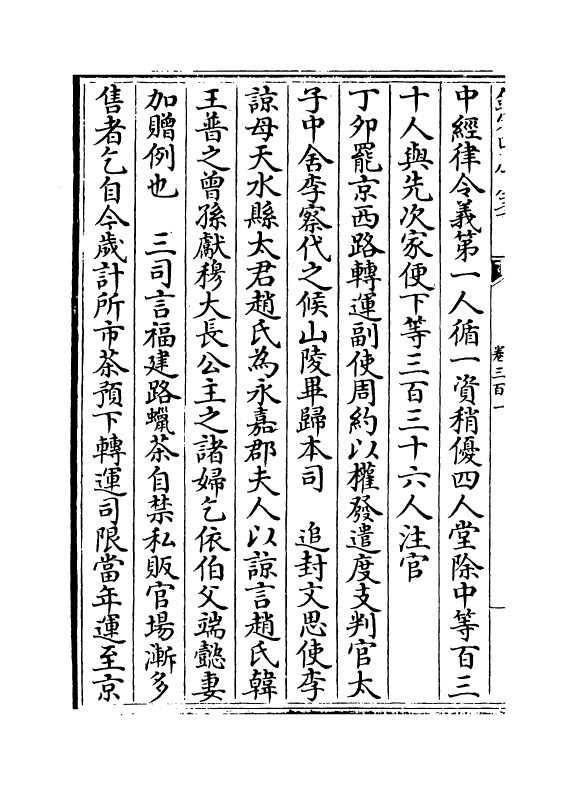 卷三百一
中經律令義第一人循一資稍優四人堂除中等百三
十人與先次家便下等三百三十六人注官
丁夘罷京西路轉運副使周約以權發遣度支判官太
子中舍李察代之候山陵畢歸本司　追封文思使李
諒母天水縣太君趙氏為永嘉郡夫人以諒言趙氏韓
王普之曾孫獻穆大長公主之諸婦乞依伯父端懿妻
加贈例也　三司言福建路蠟茶自禁私販官場漸多
售者乞自今歲計所市茶預下轉運司限當年運至京